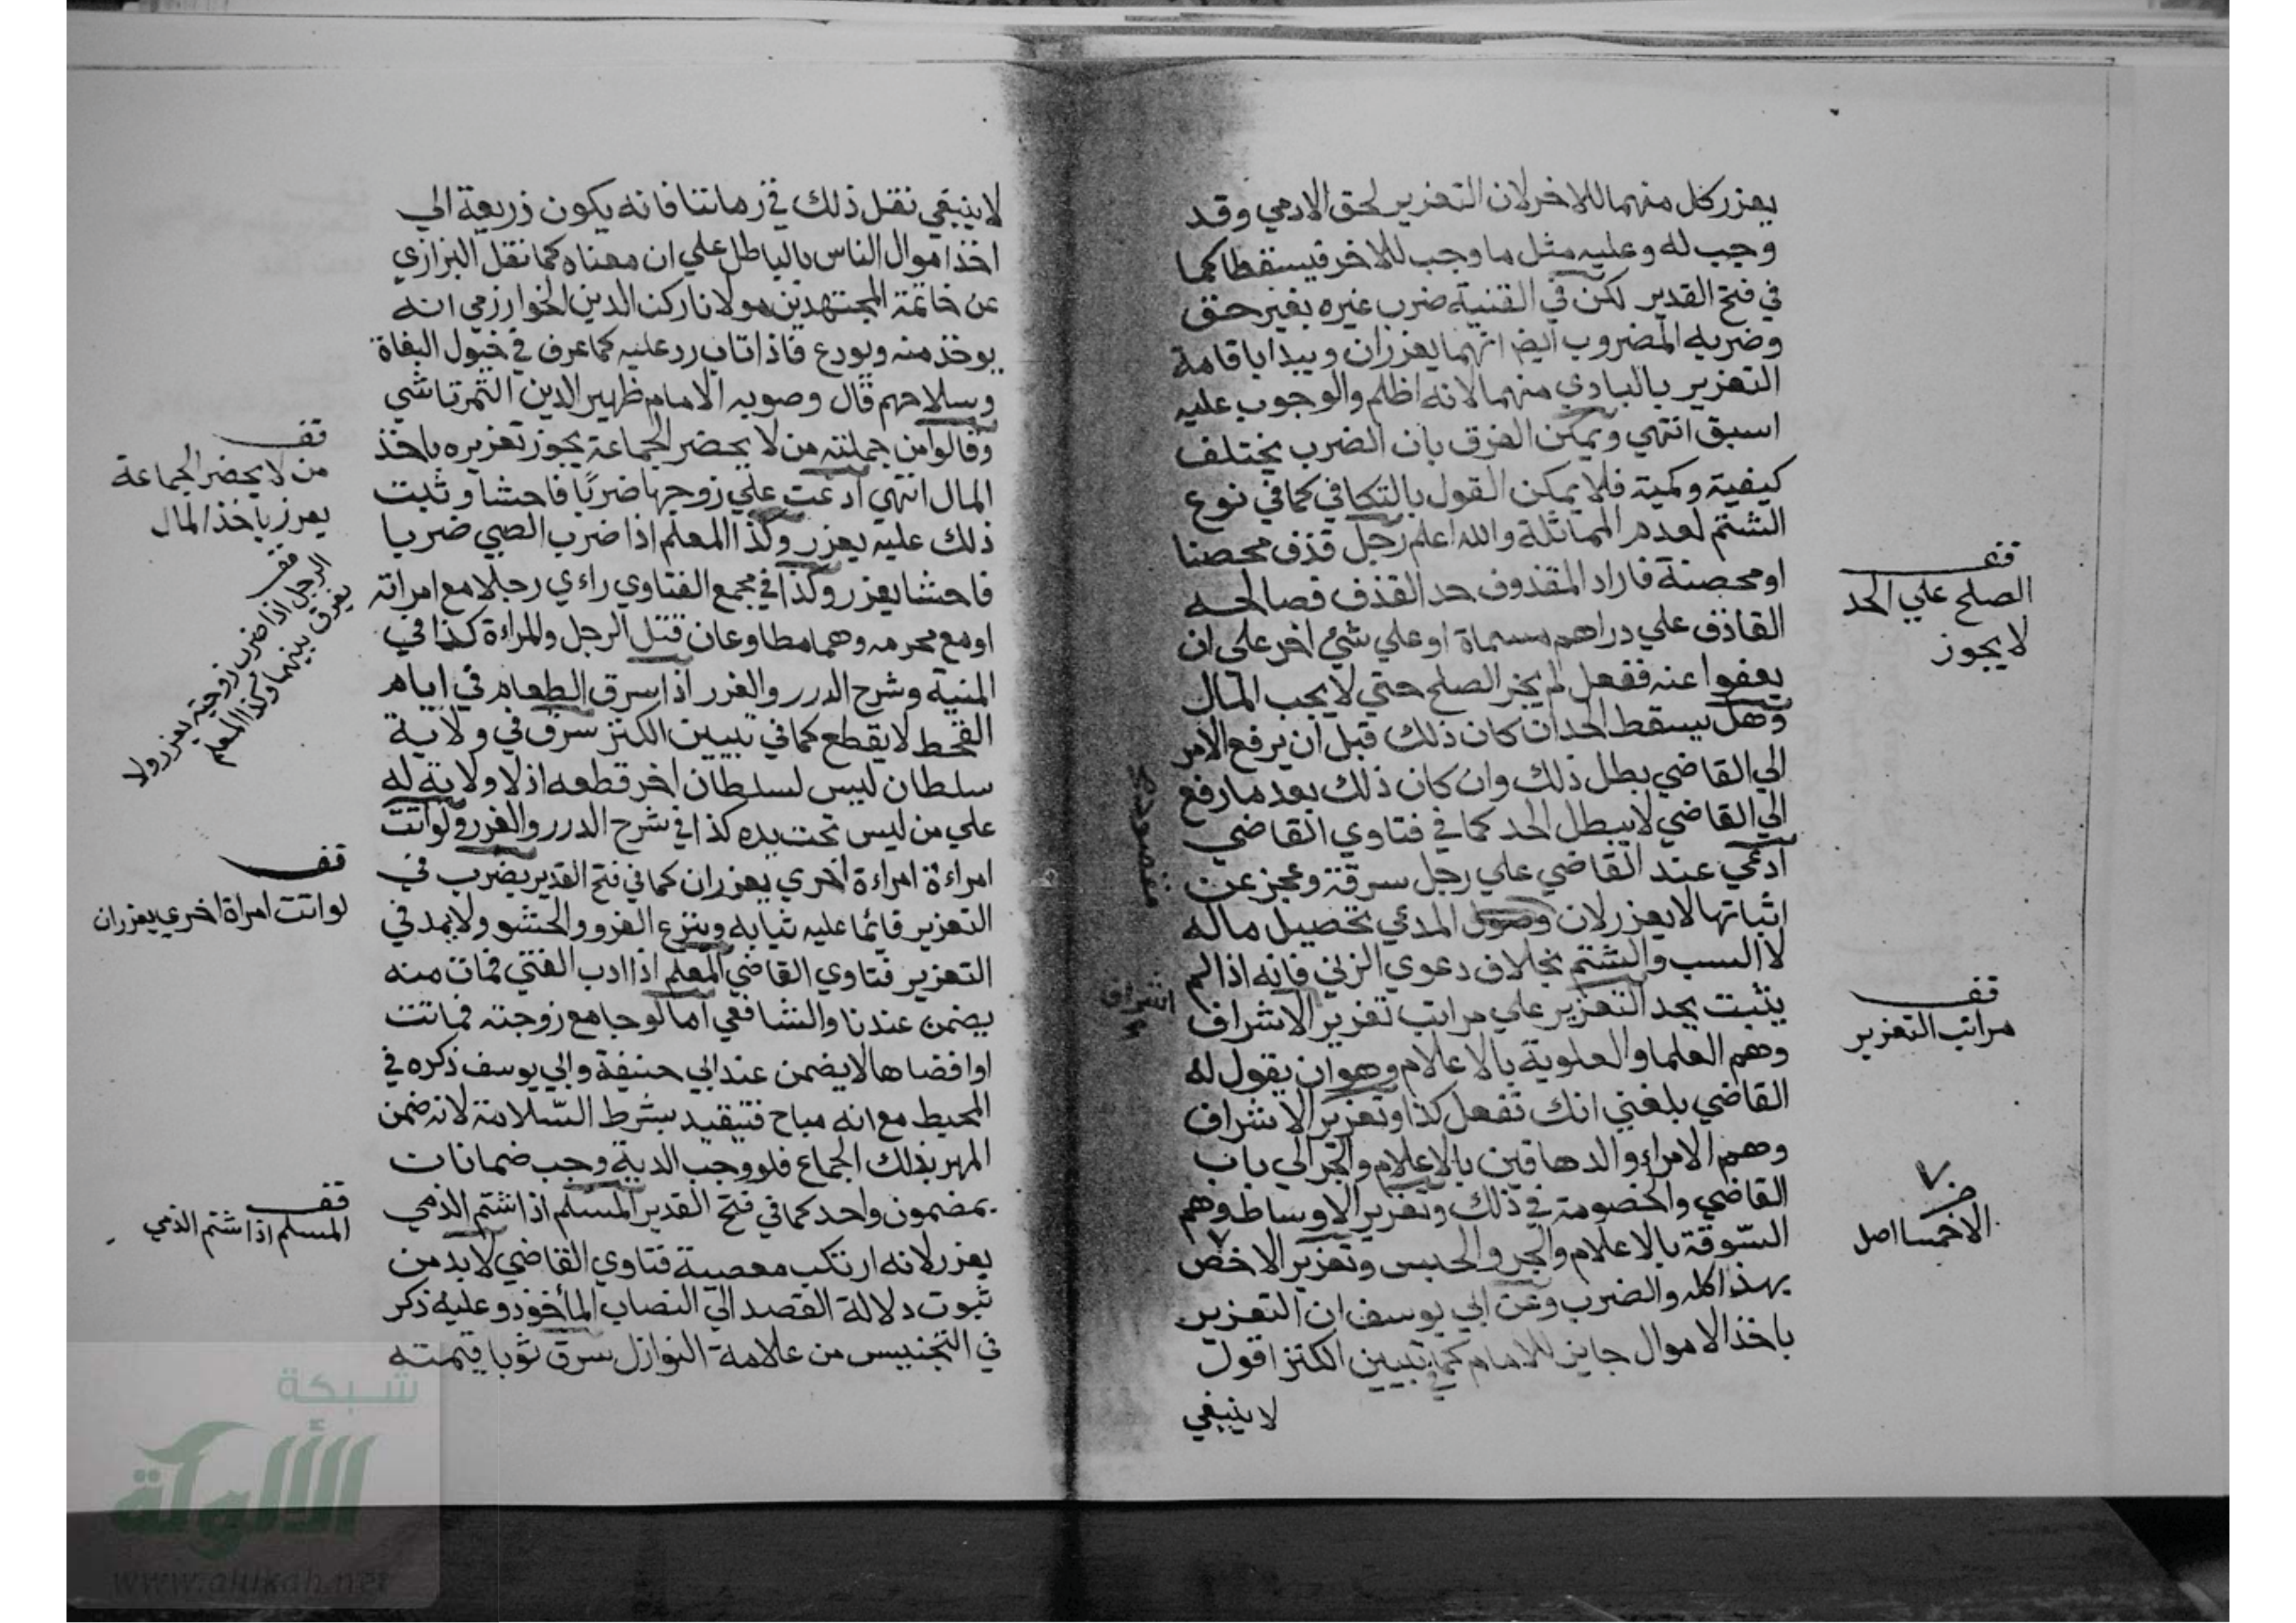 يعزر كل منهما للاخر لان التعزير لحق الادمي وقد
وجب له وعليه مثل ما وجب للاخر فيسقطا كما
في فتح القدير لكن في القنية ضرب غيره بغير حق
وضربه المضروب ايضا انهما يعزران ويبدا باقامة
التعزير بالبادي منهما لانه اظلم والوجوب عليه
اسبق انتهي ويمكن الفرق بان الضرب يختلف
كيفية وكمية فلا يمكن القول بالتكافي كما في نوع
الشتم لعدم المماثلة والله اعلم رجل قذف محصنا
او محصنة فاراد المقذوف حد القذف فصالحه
القاذف علي دراهم مسماة او علي شيء اخر على ان
يعفوا عنه ففعل لم يجز الصلح حتي لا يجب المال
وهل يسقط الحد ان كان ذلك قبل ان يرفع الامر
الي القاضي بطل ذلك وان كان ذلك بعد ما رفع
الي القاضي لا يبطل الحد كما في فتاوي القاضي
ادعي عند القاضي علي رجل سرقة وعجز عن
اثباتها لا يعزر لان المدعي تحصيل ماله
لا السب والشتم بخلاف دعوي الزني فانه اذا لم
يثبت يحد التعزير علي مراتب تعزير الاشراف
وهم العلما والعلوية بالاعلام وهو ان يقول له
القاضي بلغني انك تفعل كذا وتعزير الاشراف
وهم الامراء والدهاقين بالاعلام والجر الي باب
القاضي والخصومة في ذلك وتعزير الاوساط وهم
السوقة بالاعلام والجر والحبس وتعزير الاخص
بهذا كله والضرب وعن ابي يوسف ان التعزير
باخذ الاموال جايز للامام كما في تبيين الكنز اقول
لا ينبغي
قف
الصلح علي الحد
لا يجوز
قف
مراتب التعزير
الاخسا اصل
اشراف
لا ينبغي نقل ذلك في زماننا فانه يكون ذريعة الي
اخذ اموال الناس بالباطل علي ان معناه كما نقل البزازي
عن خاتمة المجتهدين مولانا ركن الدين الخوارزمي انه
يوخذ منه ويودع فاذا تاب رد عليه كما عرف في خيول البغاة
وسلاحهم قال وصوبه الامام ظهير الدين التمرتاشي
وقالوا من جملته من لا يحضر الجماعة يجوز تعزيره باخذ
المال انتهي ادعت علي زوجها ضربًا فاحشا وثبت
ذلك عليه يعزر وكذا المعلم اذا ضرب الصبي ضربا
فاحشا يعزر وكذا في مجمع الفتاوي راءي رجلا مع امراته
او مع محرمه وهما مطاوعان قتل الرجل والمراءة كذا في
المنية وشرح الدرر والغرر اذا سرق الطعام في ايام
القحط لا يقطع كما في تبيين الكنز سرق في ولاية
سلطان ليس لسلطان اخر قطعه اذ لا ولاية له
علي من ليس تحت يده كذا في شرح الدرر والغرر ولو اتت
امراءة امراءة اخري يعزران كما في فتح القدير يضرب في
التعزير قائما عليه ثيابه وينزع الفرو والحشو ولا يمد في
التعزير فتاوي القاضي المعلم اذا ادب الفتي فمات منه
يضمن عندنا والشافعي اما لو جامع زوجته فماتت
او افضاها لا يضمن عند ابي حنيفة وابي يوسف ذكره في
المحيط مع انه مباح فتيقيد بشرط السّلامة لانه ضمن
المهر بذلك الجماع فلو وجب الدية وجب ضمانات
بمضمون واحد كما في فتح القدير المسلم اذا شتم الذمي
يعزر لانه ارتكب معصية فتاوي القاضي لا بد من
ثبوت دلالة القصد الي النصاب المأخوذ وعليه ذكر
في التجنيس من علامة النوازل سرق ثوبا قيمته
قف
من لا يحضر الجماعة
يعزر باخذ المال
قف
الرجل اذا ضرب زوجته يعزر ولا
يفرق بينهما وكذا المعلم
قف
لو اتت امراة اخري يعزران
قف
المسلم اذا شتم الذمي
شبكة
الألوكة
www.alukah.net